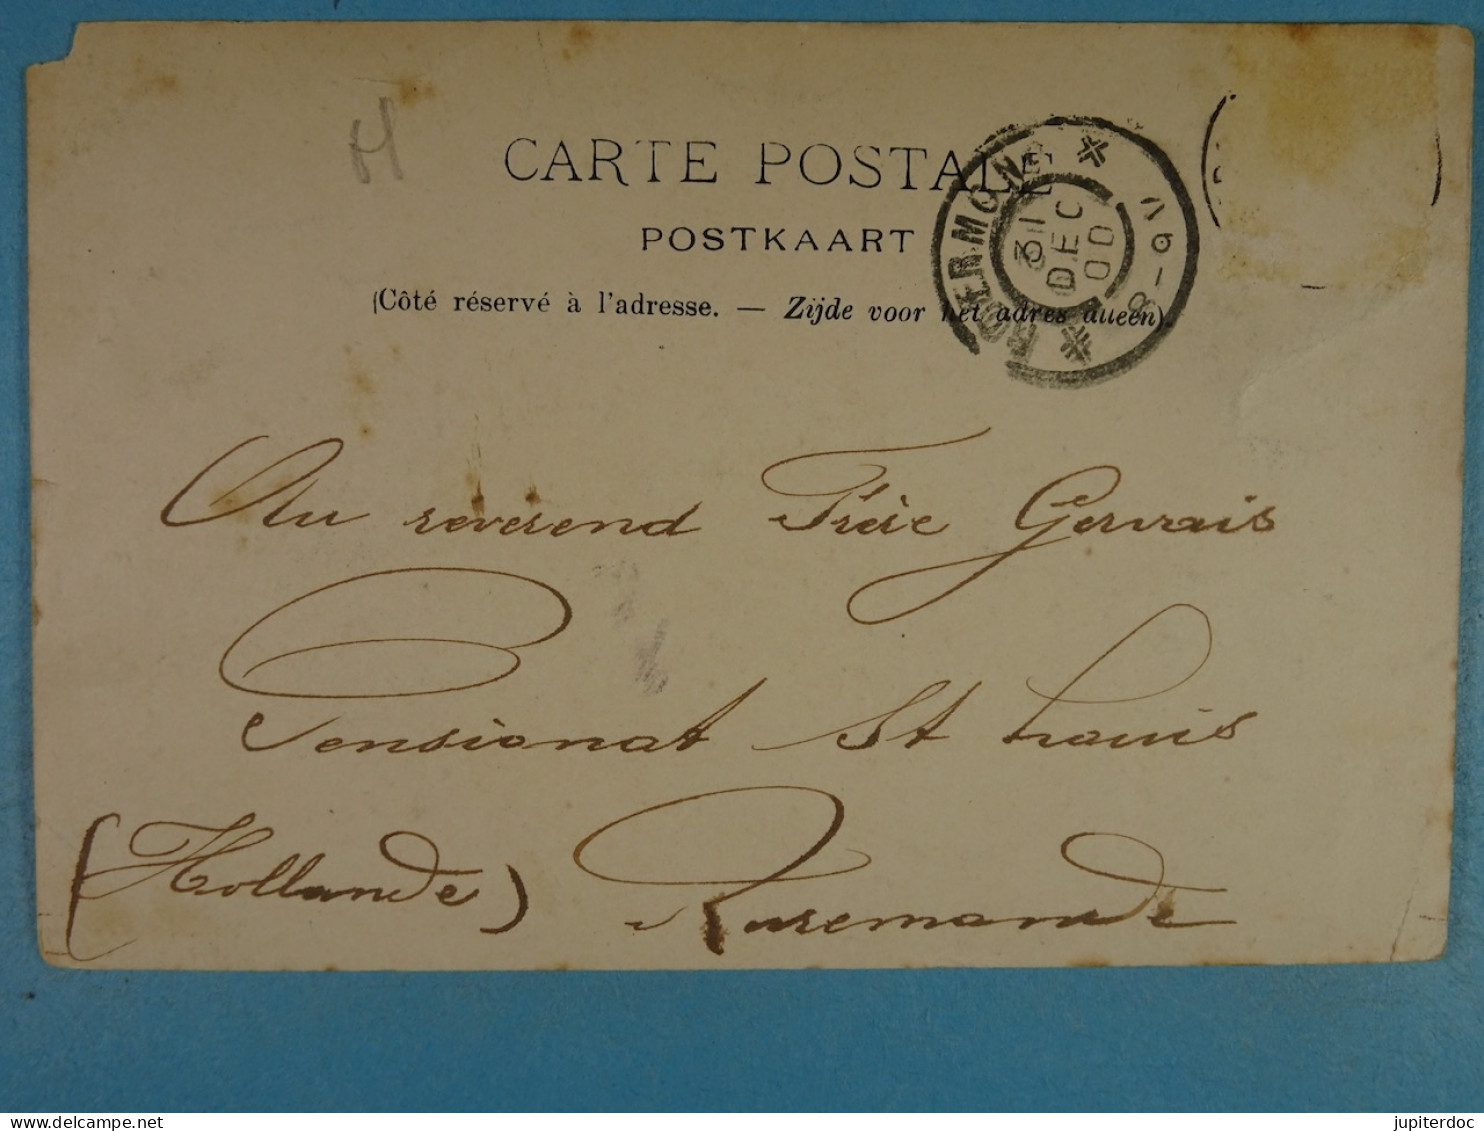 H
CARTE POSTALE
POSTKAART
(Côté réservé à l'adresse. — Zijde voor het adres alleen).
* ROERMOND * 8-9V
31
DEC
00
Au reverend Frère Gervais
Pensionat St Louis
(Hollande) Ruremonde
jupiterdoc